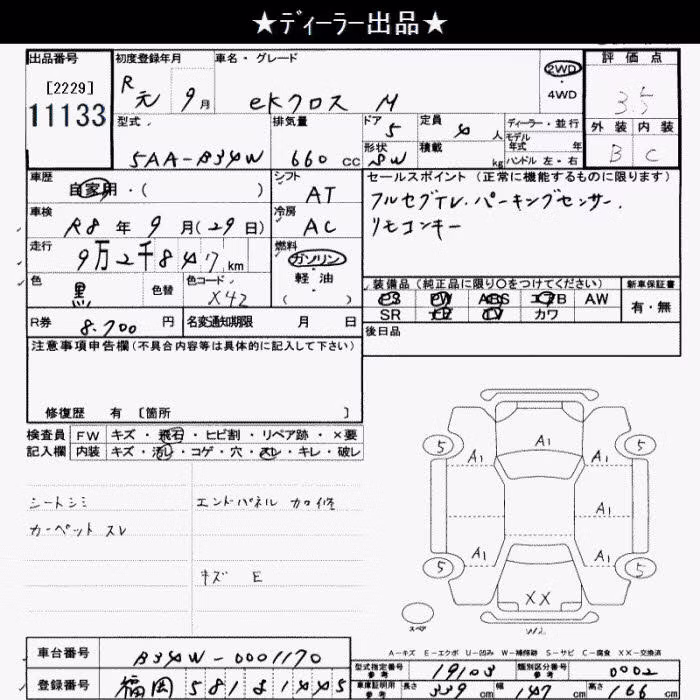 ★ディーラー出品★
出品番号 [2229] 11133
初度登録年月 R元 9月
車名・グレード eKクロス M
2WD・4WD
評価点 3.5
外装 B 内装 C
型式 5AA-B34W
排気量 660cc
ドア 5 形状 SW
定員 4人 積載 kg
ディーラー・並行
モデル年式 年
ハンドル 左・右
車歴 自家用・( )
シフト AT
セールスポイント(正常に機能するものに限ります)
フルセグTV.パーキングセンサー.
リモコンキー
車検 R8年9月(29日)
冷房 AC
走行 9万2千847km
燃料 ガソリン・軽油・( )
色 黒 色替 色コード X42
装備品(純正品に限り○をつけてください) 新車保証書
PS PW ABS エアB AW 有・無
SR ナビ TV カワ
R券 8.700円 名変通知期限 月 日
後日品
注意事項申告欄(不具合内容等は具体的に記入して下さい)
修復歴 有 [箇所 ]
検査員記入欄 FW キズ・飛石・ヒビ割・リペア跡・×要
内装 キズ・汚レ・コゲ・穴・スレ・キレ・破レ
シートシミ
カーペット スレ
エンドパネル カロ修
キズ E
A1
5 A1 A1 5
A1
5 A1 A1 5
XX
スペア W2
A-キズ E-エクボ U-凹み W-補修跡 S-サビ C-腐食 XX-交換済
車台番号 B34W-0001170
型式指定番号 参考 19103 類別区分番号 参考 0002
登録番号 福岡 581 さ 1445
車庫証明用 参考 長さ 339cm 幅 147cm 高さ 166cm